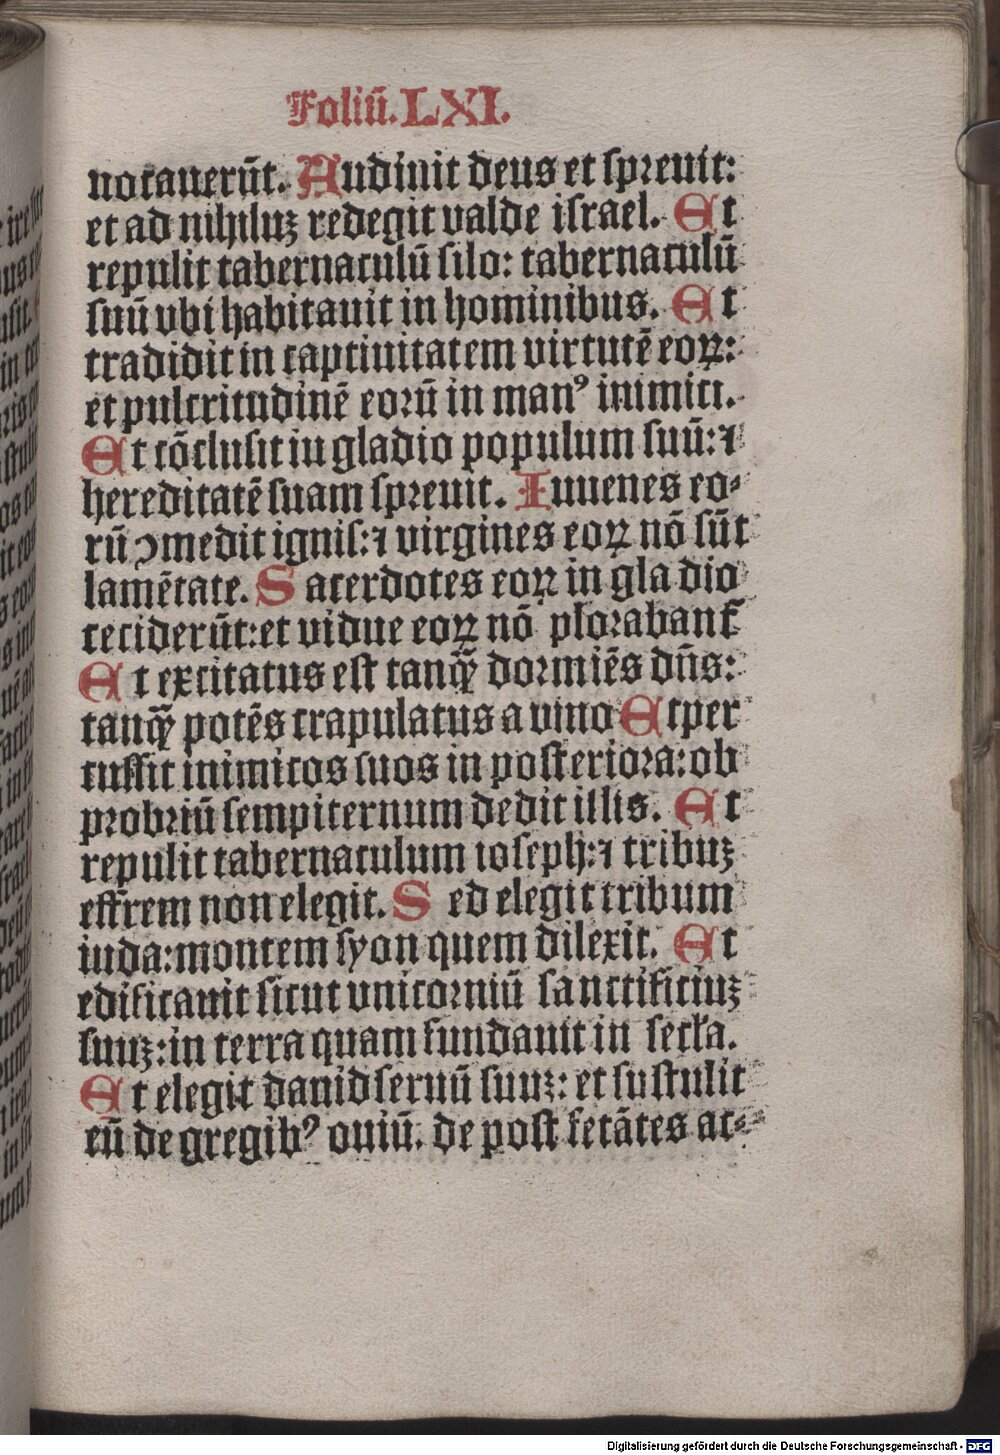 Foliū. LXI.
uocauerūt. Audiuit deus et spreuit:
et ad nihiluꝫ redegit valde israel. Et
repulit tabernaculū silo: tabernaculū
suū vbi habitauit in hominibus. Et
tradidit in captiuitatem virtutē eoꝝ:
et pulcritudinē eorū in manꝰ inimici.
Et cōclusit in gladio populum suū: ⁊
hereditatē suam spreuit. Iuuenes eo⸗
rū ꝯmedit ignis: ⁊ virgines eoꝝ nō sūt
lamētate. Sacerdotes eoꝝ in gladio
ceciderūt: et vidue eoꝝ nō plorabant̄
Et excitatus est tanꝙ̄ dormiēs dn̄s:
tanꝙ̄ potēs crapulatus a vino Et per
cussit inimicos suos in posteriora: ob
probriū sempiternum dedit illis. Et
repulit tabernaculum ioseph: ⁊ tribuꝫ
effrem non elegit. Sed elegit tribum
iuda: montem syon quem dilexit. Et
edificauit sicut vnicorniū sanctificiuꝫ
suuꝫ: in terra quam fundauit in secła.
Et elegit dauid seruū suuꝫ: et sustulit
eū de gregibꝰ ouiū. de post fetātes ac⸗
Digitalisierung gefördert durch die Deutsche Forschungsgemeinschaft - DFG